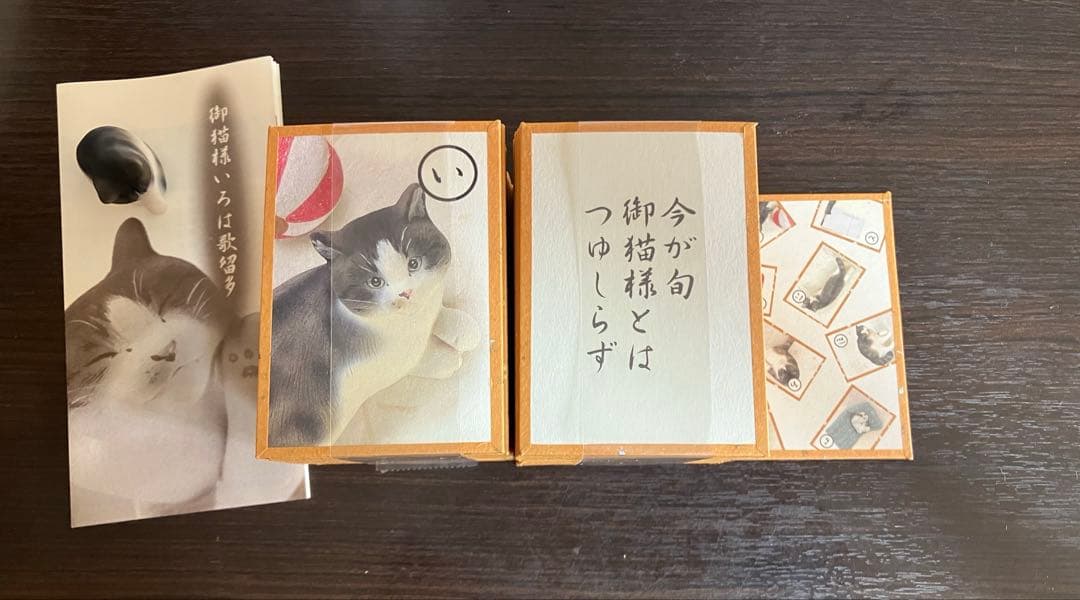 御猫様いろは歌留多
い
今が旬
御猫様とは
つゆしらず